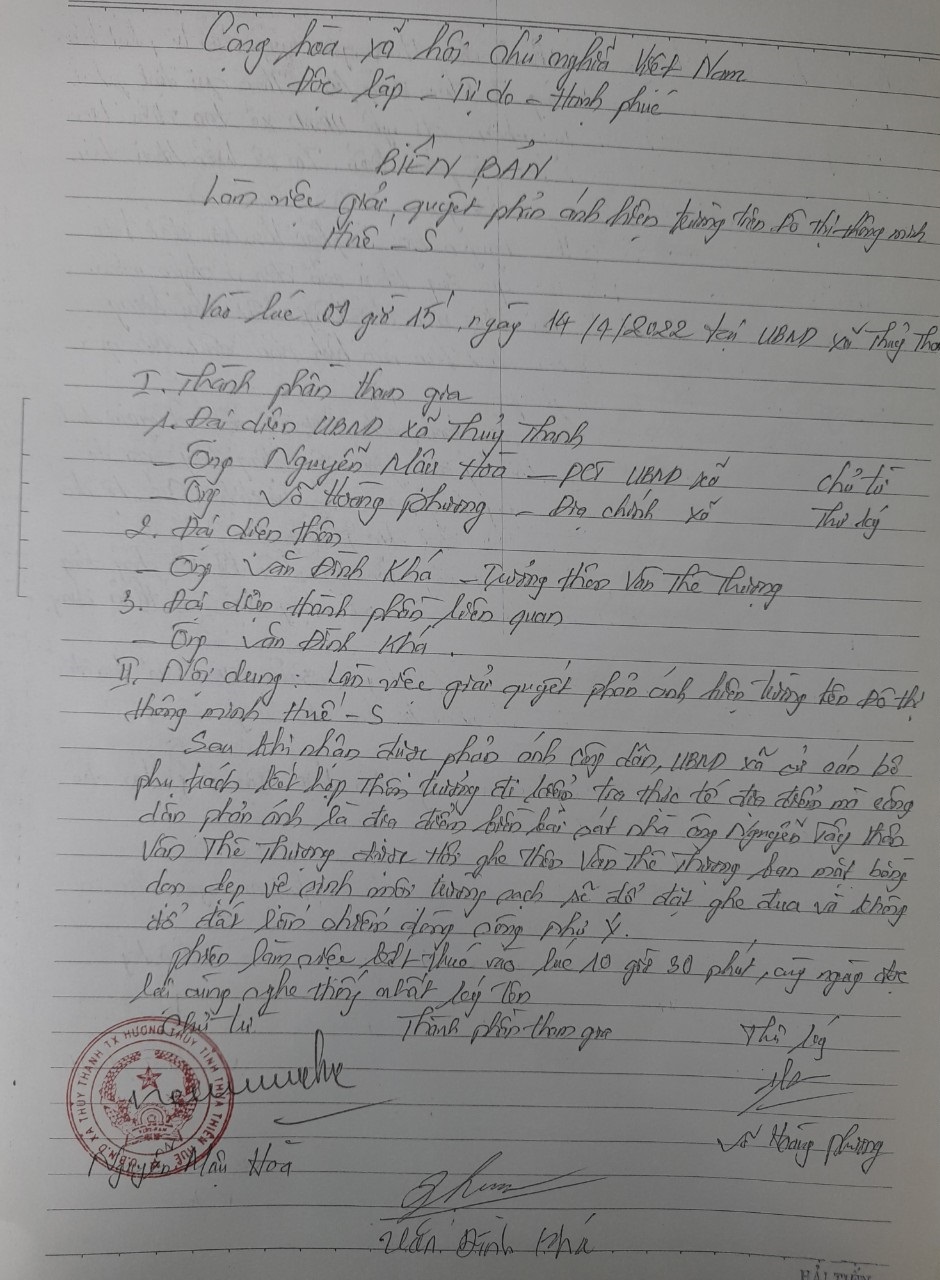 Cộng hòa xã hội chủ nghĩa Việt Nam
Độc lập - Tự do - Hạnh phúc
BIÊN BẢN
Làm việc giải quyết phản ánh hiện trường trên Đô thị thông minh
Huế - S
Vào lúc 09 giờ 15', ngày 14/4/2022 tại UBND xã Thủy Tha
I. Thành phần tham gia
1. Đại diện UBND xã Thuỷ Thanh
- Ông Nguyễn Mậu Hoà - PCT UBND xã chủ trì
- Ông Võ Hoàng Phương - Địa chính xã Thư ký
2. Đại diện thôn
- Ông Văn Đình Khá - Trưởng thôn Vân Thê Thượng
3. Đại diện thành phần liên quan
- Ông Văn Đình Khá.
II. Nội dung: Làm việc giải quyết phản ánh hiện trường trên Đô thị
thông minh Huế - S
Sau khi nhận được phản ánh công dân, UBND xã cử cán bộ
phụ trách kết hợp Thôn trưởng đi kiểm tra thực tế địa điểm mà công
dân phản ánh là địa điểm sát nhà ông Nguyễn Vầy thôn
Vân Thê Thượng được ghe thôn Vân Thê Thượng mặt bằng
dọn dẹp vệ sinh môi trường sạch sẽ để đặt ghe đua và không
đổ đất lấn chiếm dòng sông Phú Ý.
Phiên làm việc kết thúc vào lúc 10 giờ 30 phút, cùng ngày đọc
lại cùng nghe thống nhất ký tên
Chủ trì Thành phần tham gia Thư ký
U.B.N.D XÃ THỦY THANH TX HƯƠNG THỦY TỈNH THỪA THIÊN HUẾ
Võ Hoàng Phương
Nguyễn Mậu Hòa
Văn Đình Khá
HẢI TIẾN